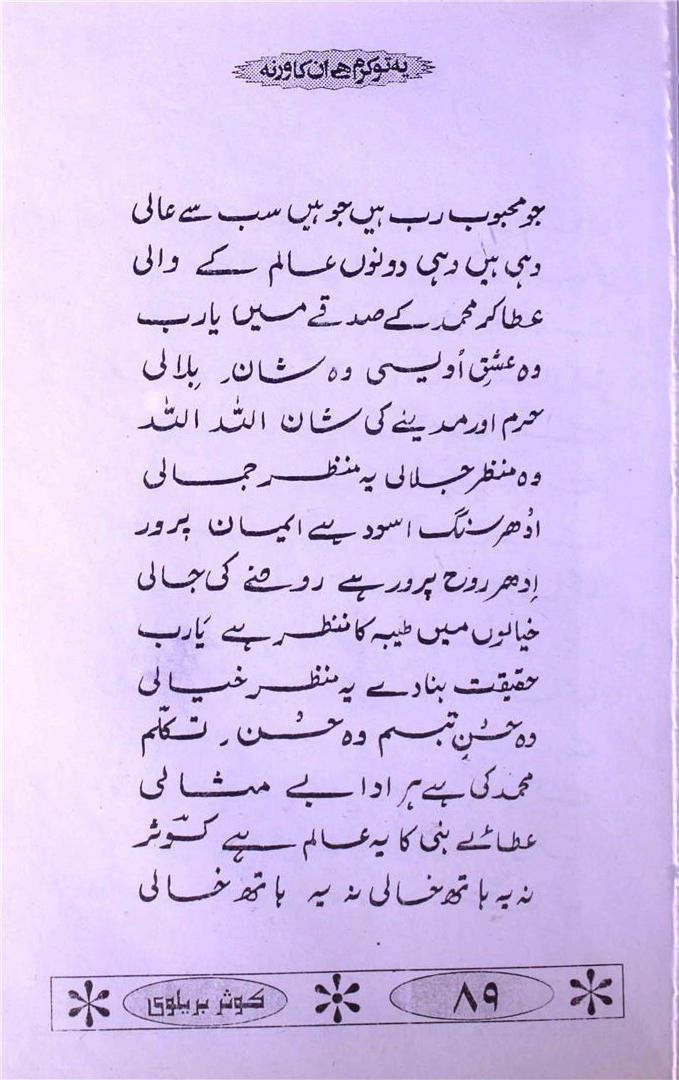 یہ تو کرم ہے ان کا ورنہ
جو محبوب رب ہیں جو ہیں سب سے عالی
وہی ہیں وہی دونوں عالم کے والی
عطا کر محمد کے صدقے میں یارب
وہ عشقِ اُویسی وہ شانِ بِلالی
حرم اور مدینے کی شان اللہ اللہ
وہ منظر جلالی یہ منظر جمالی
اُدھر سنگ اسود ہے ایمان پرور
اِدھر روح پرور ہے روضے کی جالی
خیالوں میں طیبہ کا منظر ہے یَارب
حقیقت بنادے یہ منظر خیالی
وہ حُسنِ تبسم وہ حُسنِ تکلّم
محمد کی ہے ہر ادا بے مثالی
عطائے نبی کا یہ عالم ہے کوثر
نہ یہ ہاتھ خالی نہ یہ ہاتھ خالی
کوثر بریلوی ۸۹